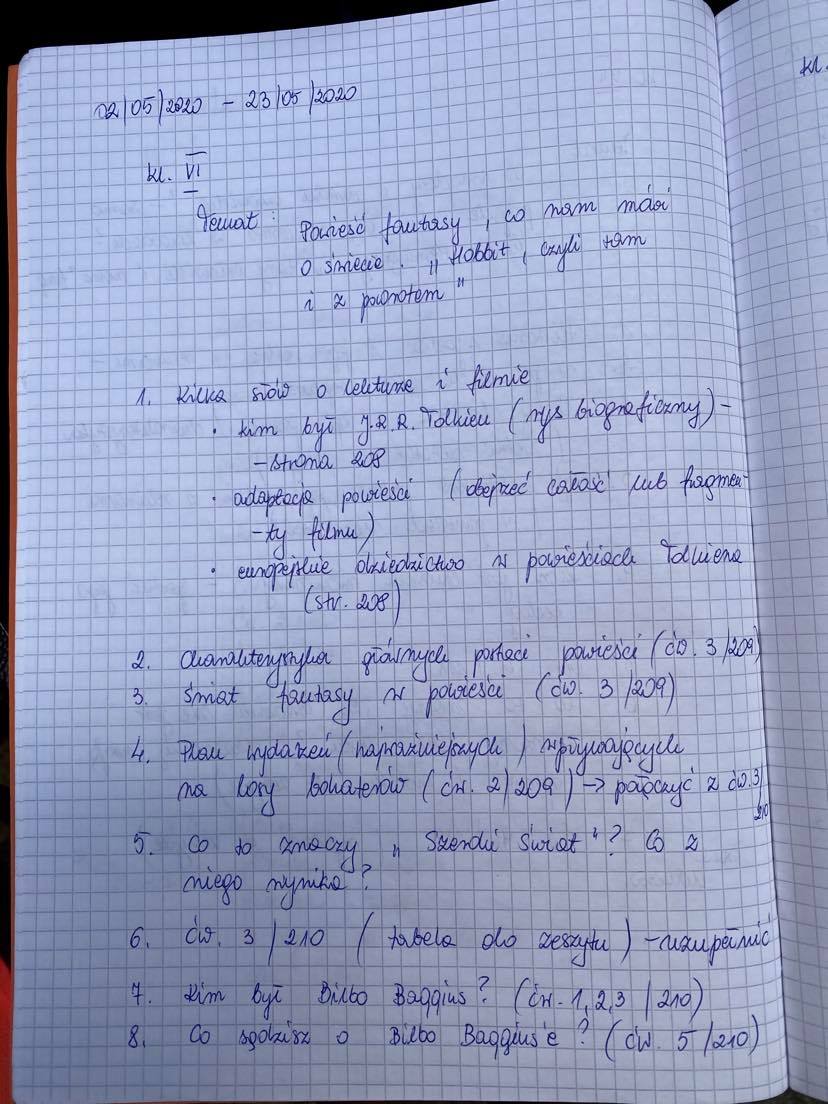 02/05/2020 - 23/05/2020
kl.
kl. VI
Temat: Powieść fantasy, co nam mówi
o świecie. "Hobbit, czyli tam
i z powrotem"
1. Kilka słów o lekturze i filmie
• kim był J.R.R. Tolkien (rys biograficzny) -
- strona 208
• adaptacja powieści (obejrzeć całość lub fragmen-
-ty filmu)
• europejskie dziedzictwo w powieściach Tolkiena
(str. 208)
2. Charakterystyka głównych postaci powieści (ćw. 3/209)
3. Świat fantasy w powieści (ćw. 3/209)
4. Plan wydarzeń (najważniejszych) wpływających
na losy bohaterów (ćw. 2/209) → połączyć z ćw. 3/
210
5. Co to znaczy "Szeroki świat"? Co z
niego wynika?
6. ćw. 3/210 (tabela do zeszytu) - uzupełnić
7. Kim był Bilbo Baggins? (ćw. 1,2,3/210)
8. Co sądzisz o Bilbo Baggins'e? (ćw. 5/210)